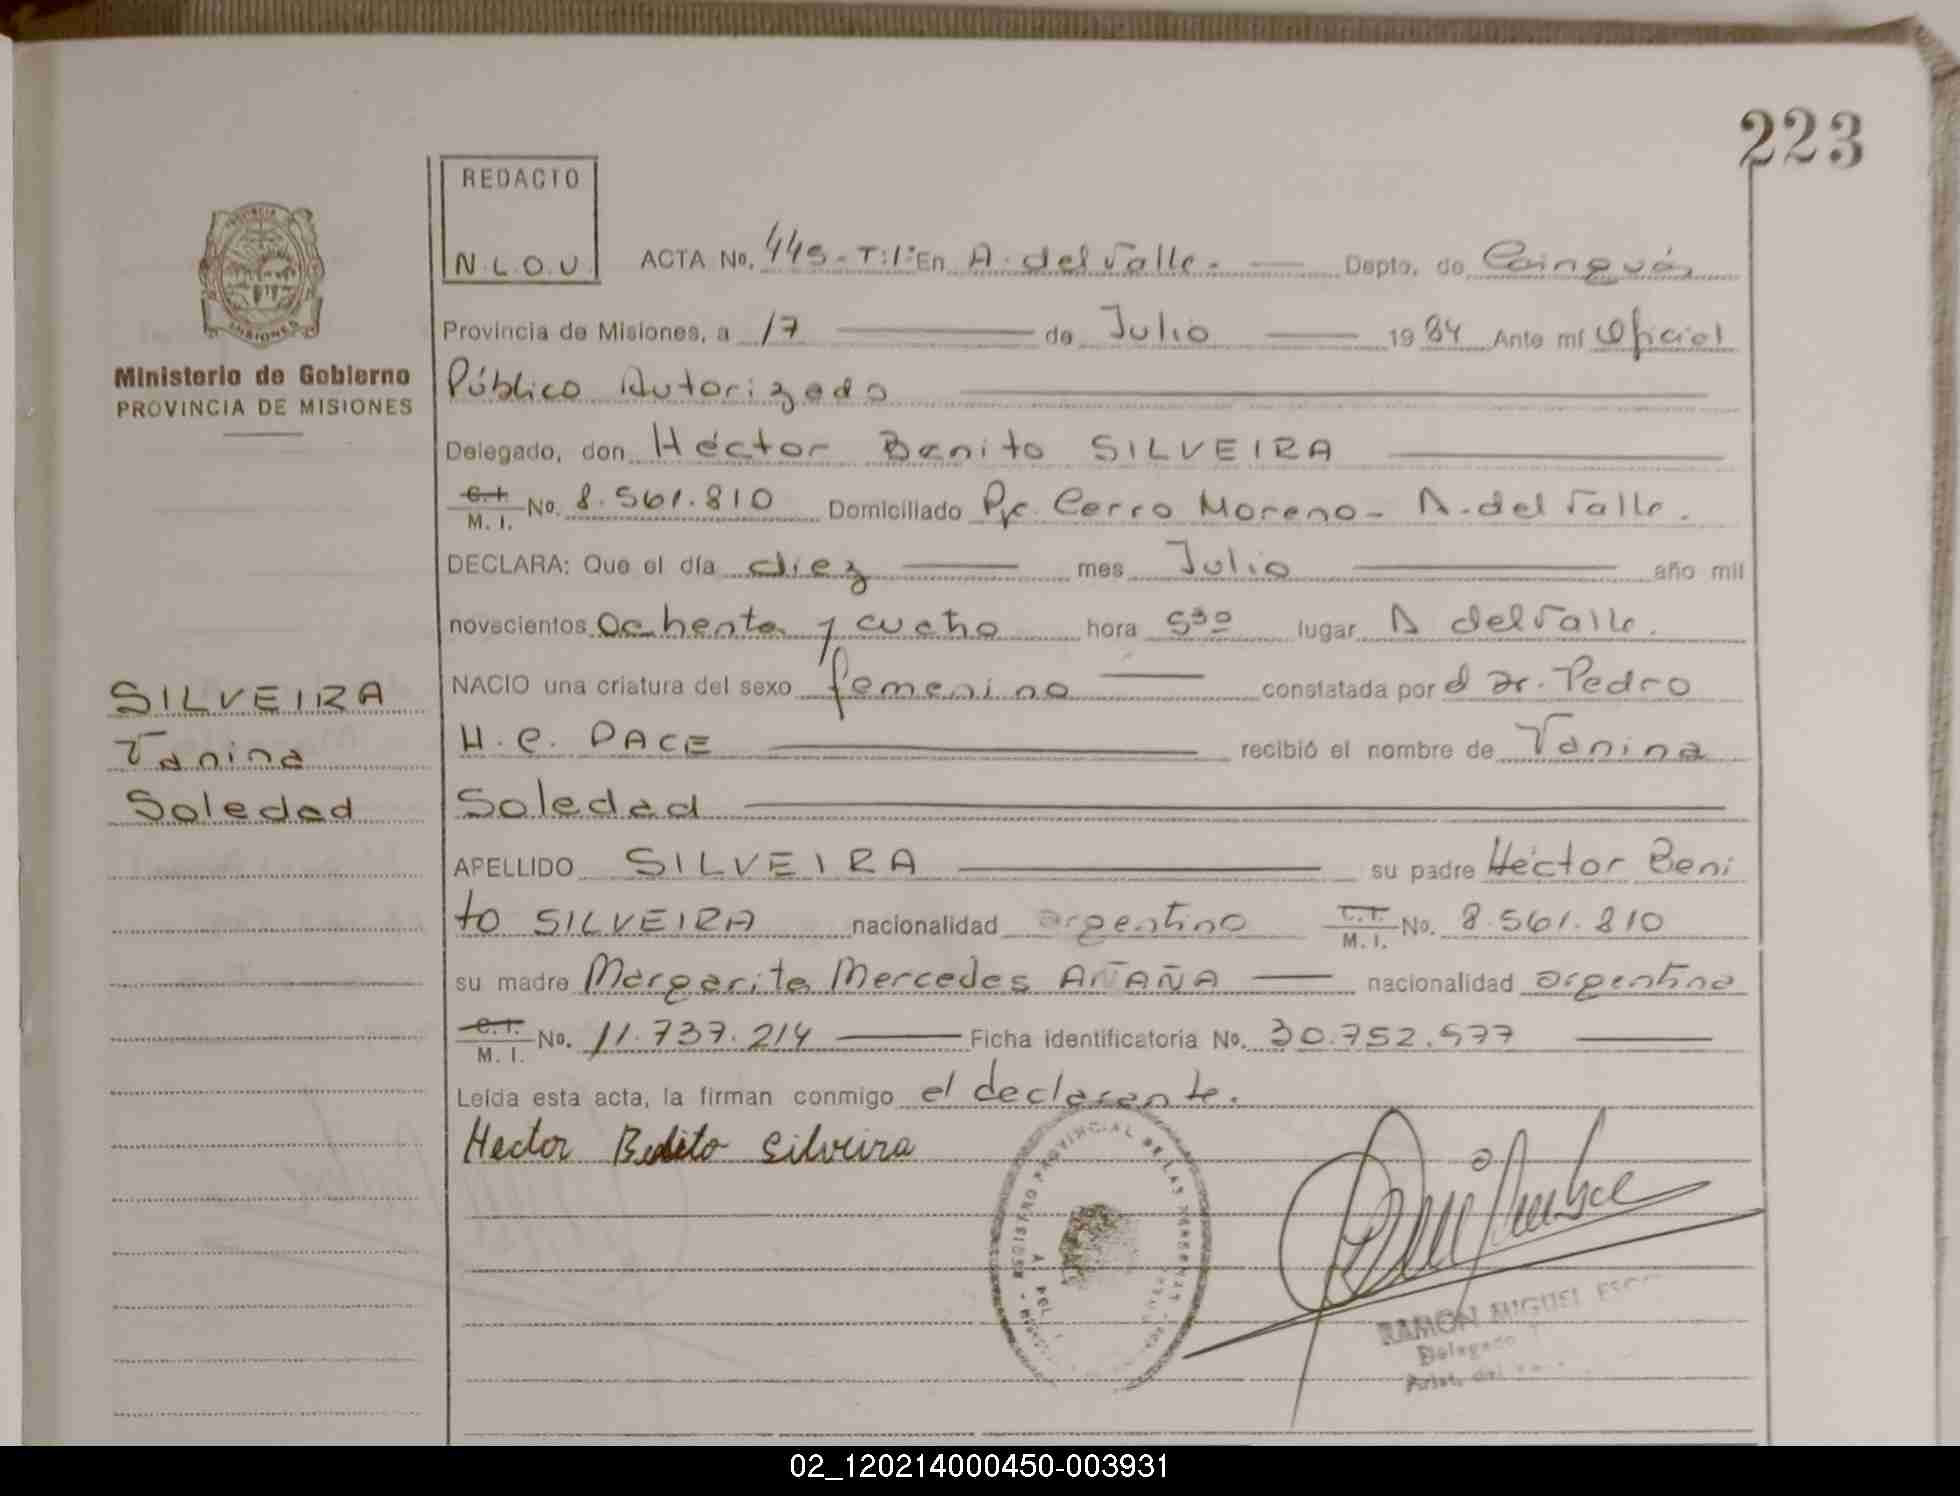 223
REDACTO
N.L.O.U.
ACTA No. 445-T:1° En A. del Valle. Depto. de Cainguás
Provincia de Misiones, a 17 de Julio 1984 Ante mí Oficial
Ministerio de Gobierno
PROVINCIA DE MISIONES
Público Autorizado
Delegado, don Héctor Benito SILVEIRA
C.I. M.I. No. 8.561.810 Domiciliado Pje. Cerro Moreno - A. del Valle.
DECLARA: Que el día diez mes Julio año mil
novecientos Ochenta y cuatro hora 5³⁰ lugar A del Valle.
NACIO una criatura del sexo femenino constatada por el Dr. Pedro
H. C. PACE recibió el nombre de Vanina
Soledad
SILVEIRA
Vanina
Soledad
APELLIDO SILVEIRA su padre Héctor Beni
to SILVEIRA nacionalidad argentino C.I. M.I. No. 8.561.810
su madre Margarita Mercedes AÑAÑA nacionalidad argentina
C.I. M.I. No. 11.737.214 Ficha identificatoria No. 30.752.577
Leída esta acta, la firman conmigo el declarante.
Hector Benito Silveira
REGISTRO PROVINCIAL DE LAS PERSONAS
RAMON MIGUEL
Delegado
Arist. del
02_120214000450-003931